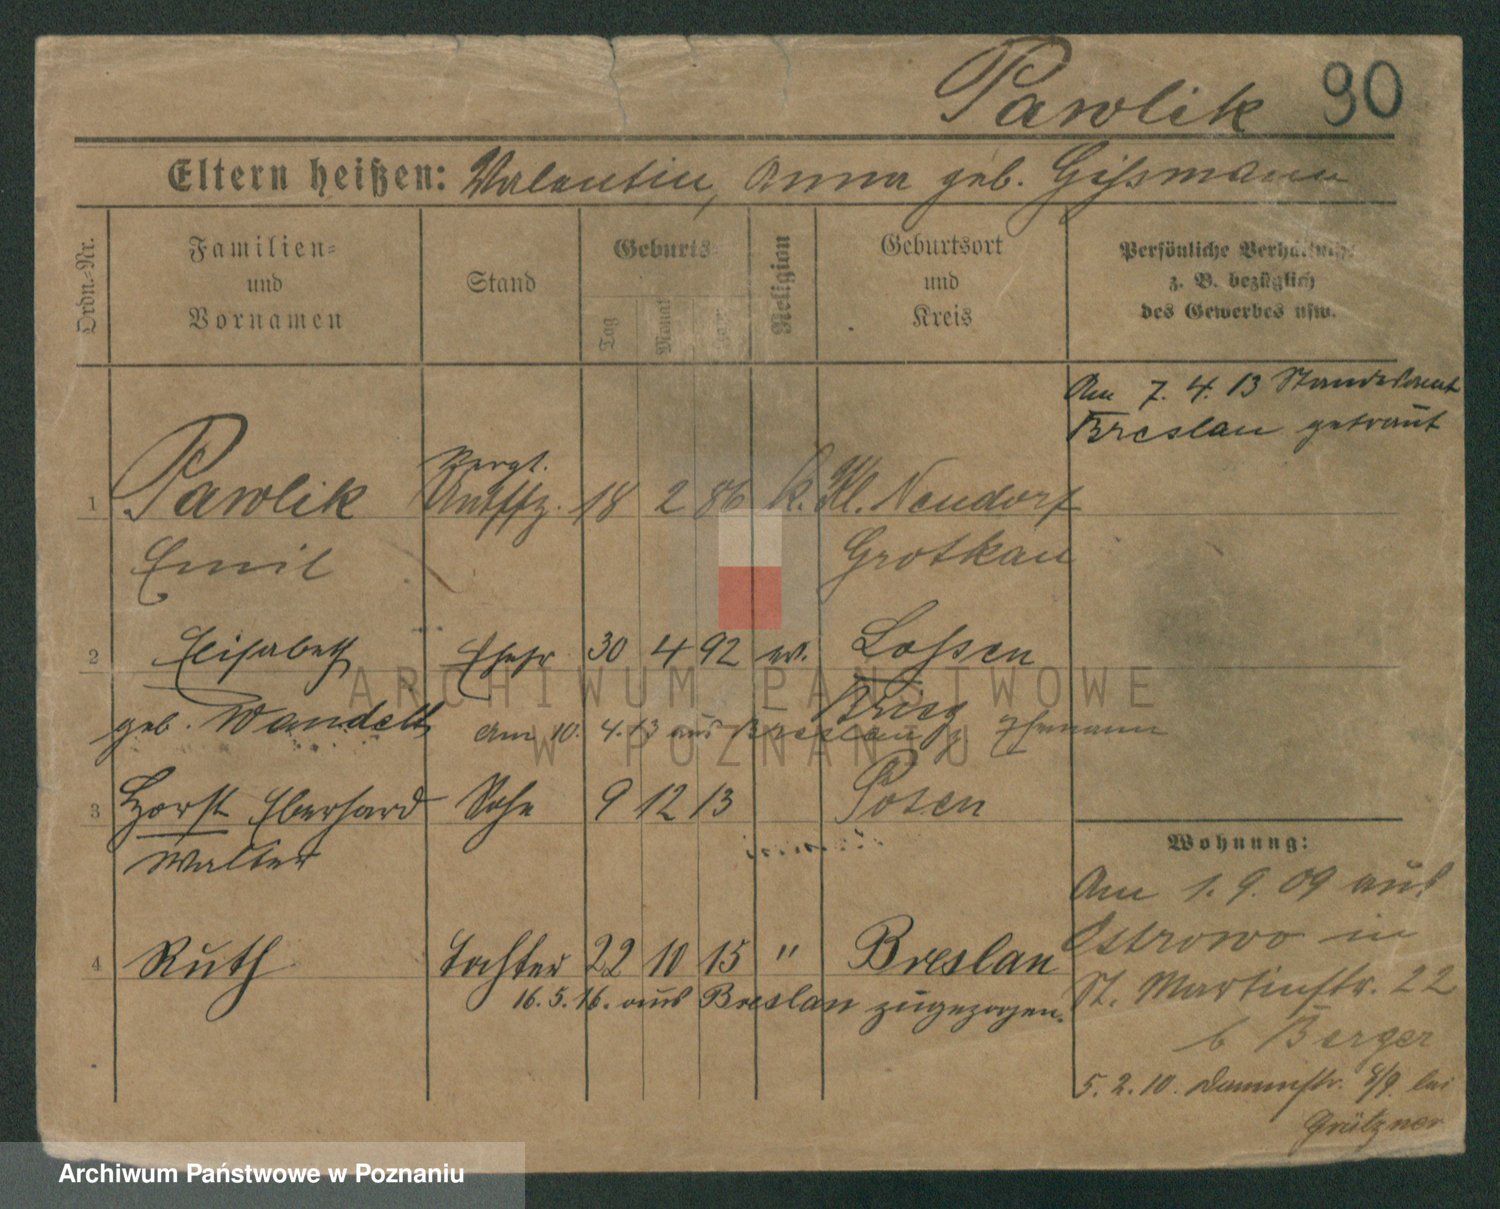 Pawlik 90
Eltern heißen: Valentin, Anna geb. Gißmann
Ordn.-Nr.
Familien-
und
Vornamen
Stand
Geburts
Tag
Monat
Religion
Geburtsort
und
Kreis
Persönliche Verhältnisse
z. B. bezüglich
des Gewerbes usw.
Am 7. 4. 13 Standesamt
Breslau getraut
1 Pawlik 18 2 86 k. Kl. Neudorf
Emil Grotkau
2 Elisabeth Ehefr 30 4 92 ev. Lossen
geb. Wandelt Brieg
am 10. 4. 13 aus Breslau z Ehemann
3 Horst Eberhard Sohn 9 12 13 Posen
Walter
4 Ruth Tochter 22 10 15 " Breslau
16. 5. 16. aus Breslau zugezogen.
Wohnung:
Am 1. 9. 09 aus
Ostrowo in
St. Martinstr. 22
b Berger
5. 2. 10. Dammstr. 8/9. bei
Grützner
ARCHIWUM PAŃSTWOWE
W POZNANIU
Archiwum Państwowe w Poznaniu